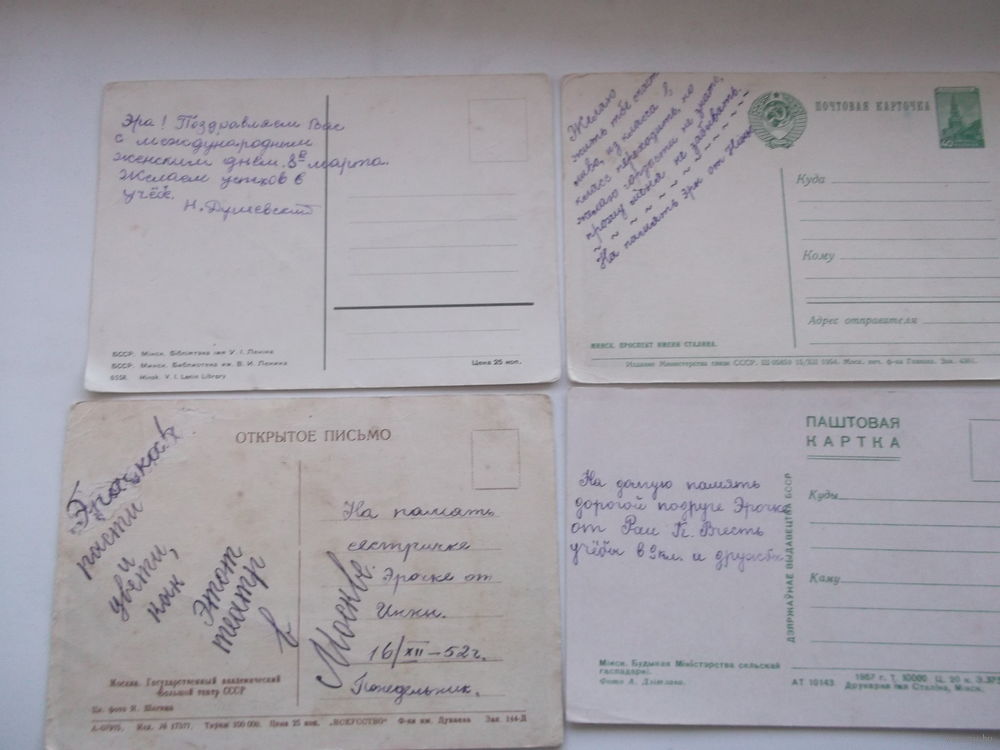 Эра! Поздравляем Вас
с международным
женским днём 8е марта.
Желаем успехов в
учёбе.
БССР. Мінск. Бібліятэка імя У. І. Леніна
БССР. Минск. Библиотека им. В. И. Ленина
Minsk. V. I. Lenin Library
Цена 25 коп.
Желаю
жить тебе счаст
ливо, из класса в
класс переходить, но
желаю гордости не знать,
прошу меня не забывать.
На память Эре от Нины
ПОЧТОВАЯ КАРТОЧКА
40
Куда
Кому
Адрес отправителя
МИНСК. ПРОСПЕКТ ИМЕНИ СТАЛИНА.
Издание Министерства связи СССР.
Эрочка!
расти
и
цвети,
как
этот
театр
в
Москве.
ОТКРЫТОЕ ПИСЬМО
На память
сестричке
Эрочке от
Инны.
16/XII–52г.
Понедельник.
Москва. Государственный академический
Большой театр СССР
Цв. фото Н. Шагина
Изд. № 17377. Тираж Цена 25 коп. „ИСКУССТВО" Ф-ка им. Лунаева Зак. 144-Д
ПАШТОВАЯ
КАРТКА
На долгую память
дорогой подруге Эрочке
от Раи
учёбы в 9 кл. и дружбы
ДЗЯРЖАЎНАЕ ВЫДАВЕЦТВА БССР
Куды
Каму
Мінск. Будынак Міністэрства сельскай
гаспадаркі.
Фота А.
АТ 10143 1957 г. Т. 10000. Ц. 20 к.
Друкарня імя Сталіна, Мінск.